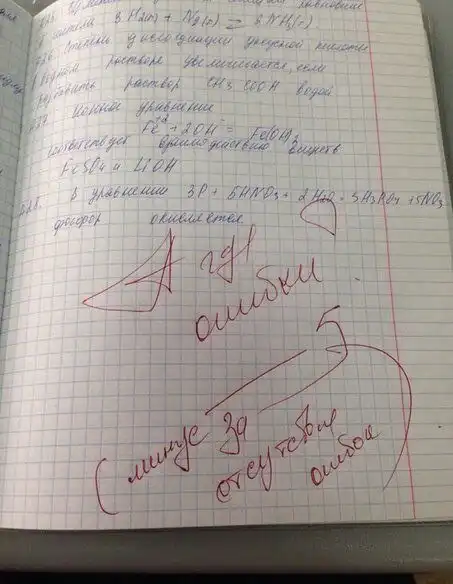 3 H2(г) + N2(г) = 2 NH3(г)
Степень диссоциации уксусной кислоты
в водном растворе увеличивается, если
разбавить раствор CH3COOH водой
Ионное уравнение
Fe2+ + 2OH- = Fe(OH)2
соответствует взаимодействию веществ
FeSO4 и LiOH
В уравнении 3P + 5HNO3 + 2H2O = 3H3PO4 + 5NO
фосфор окисляется
А где
ошибки
5
( минус за
отсутствие
ошибок